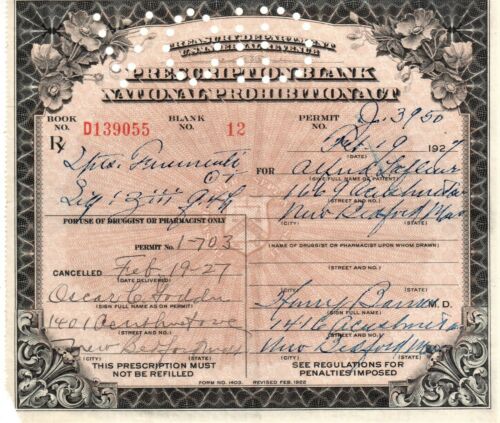 TREASURY DEPARTMENT
U.S. INTERNAL REVENUE
PRESCRIPTION BLANK
NATIONAL PROHIBITION ACT
BOOK NO. D139055 BLANK NO. 12 PERMIT NO. 3950
Feb. 19 1927
(DATE)
Rx
Spts. Frumenti
FOR Alfred
(GIVE FULL NAME OF PATIENT)
1669 Acushnet av
(STREET AND NO.)
New Bedford Mass
(CITY) (STATE)
FOR USE OF DRUGGIST OR PHARMACIST ONLY
PERMIT NO. 1-703
(NAME OF DRUGGIST OR PHARMACIST UPON WHOM DRAWN)
(STREET AND NO.)
CANCELLED Feb-19-27
(DATE DELIVERED)
(CITY) (STATE)
Oscar
(SIGN FULL NAME AS ON PERMIT)
Harry M.D.
(SIGN FULL NAME)
1401 Acushnet ave
(STREET AND NO.)
1416 Acushnet av
(STREET AND NO.)
New Bedford Mass
(CITY) (STATE)
New Bedford Mass
(CITY) (STATE)
THIS PRESCRIPTION MUST
NOT BE REFILLED
SEE REGULATIONS FOR
PENALTIES IMPOSED
FORM NO. 1403. REVISED FEB. 1922